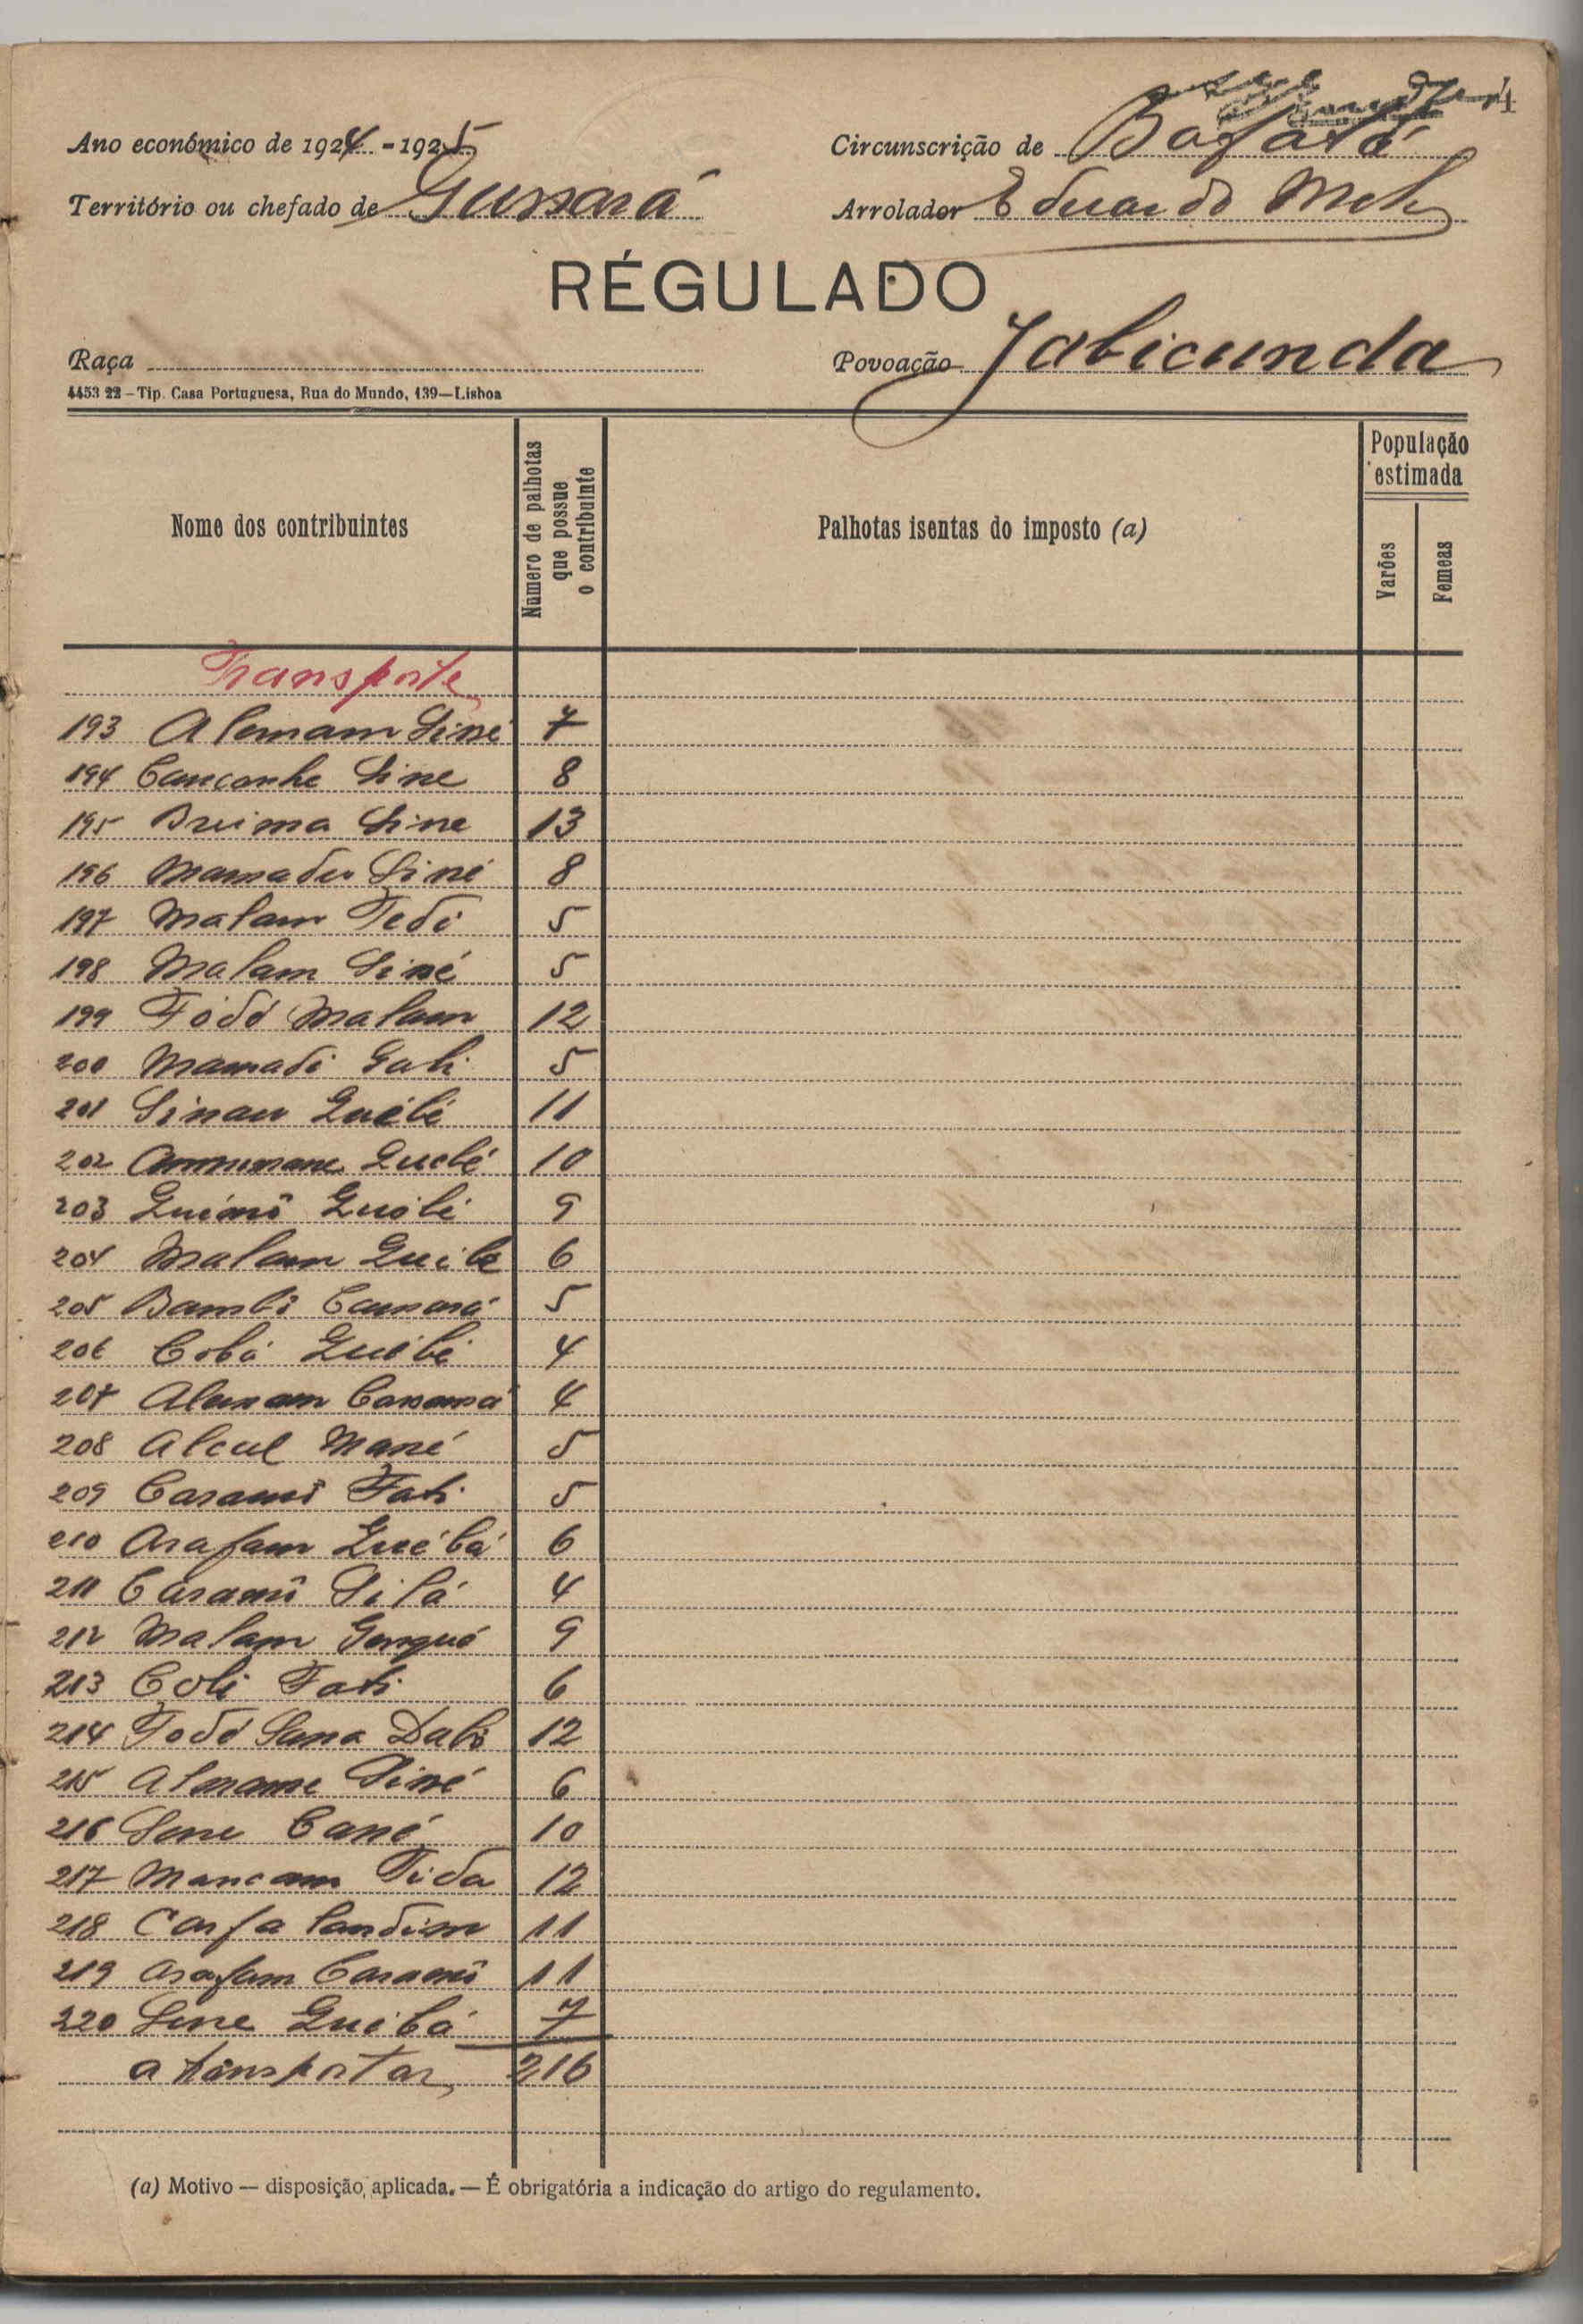 Ano económico de 1924-1925
Circunscrição de Bafatá
Território ou chefado de Gussará
Arrolador Eduardo
RÉGULADO
Raça
Povoação Jabicunda
4453 22 - Tip. Casa Portuguesa, Rua do Mundo, 139—Lisboa
Nome dos contribuintes
Número de palhotas que possue o contribuinte
Palhotas isentas do imposto (a)
População estimada
Varões
Femeas
Transporte
193 Alemam Sine 7
194 Canconhe Sine 8
195 Breima Sine 13
196 Mamadu Siné 8
197 Malam Fedi 5
198 Malam Siné 5
199 Fodé Malam 12
200 Mamadi Gali 5
201 Sinau Québé 11
202 Quebé 10
203 Quémó Québé 9
204 Malam Quebe 6
205 Bambi Camará 5
206 Cobá Québé 4
207 4
208 Alcul Mané 5
209 Caramó Fati 5
210 Arafam Québá 6
211 Caramó Silá 4
212 Malam 9
213 Coli Fati 6
214 Fodé Sana Dabó 12
215 Almame Siné 6
216 Sene Cané 10
217 Mancam Fida 12
218 Carfa Sandim 11
219 Arafam Caramó 11
220 Sene Quebá 7
a transportar 216
(a) Motivo — disposição aplicada. — É obrigatória a indicação do artigo do regulamento.